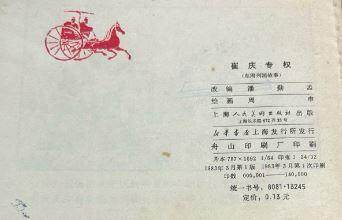 崔庆专权
(东周列国故事)
改编 潘勤孟
绘画 周申
上海人民美术出版社出版
上海长乐路672弄33号
新华书店上海发行所发行
舟山印刷厂印刷
开本 787×1092 1/64 印张 1 24/32
1983年3月第1版 1983年3月第1次印刷
印数 000,001—140,000
统一书号:8081·13245
定价:0.13元